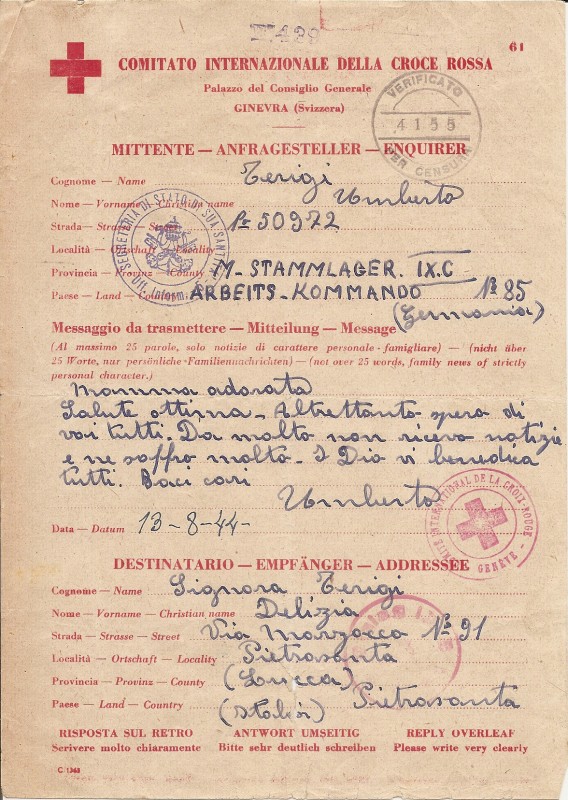 61
COMITATO INTERNAZIONALE DELLA CROCE ROSSA
Palazzo del Consiglio Generale
GINEVRA (Svizzera)
VERIFICATO
4 1 5 5
PER CENSURA
MITTENTE — ANFRAGESTELLER — ENQUIRER
Cognome — Name Terigi
Nome — Vorname — Christian name Umberto
Strada — Strasse — Street Nr 50972
SEGRETERIA DI STATO DI SUA SANTITÀ
Uff. Inform.
Località — Ortschaft — Locality
Provincia — Provinz — County M-STAMMLAGER. IX.C
Paese — Land — Country ARBEITS-KOMMANDO No 85
(Germania)
Messaggio da trasmettere — Mitteilung — Message
(Al massimo 25 parole, solo notizie di carattere personale-famigliare) — (nicht über
25 Worte, nur persönliche Familiennachrichten) — (not over 25 words, family news of strictly
personal character.)
Mamma adorata
Salute ottima - Altrettanto spero di
voi tutti. Da molto non ricevo notizie
e ne soffro molto - I Dio vi benedica
tutti. Baci cari
Umberto
Data — Datum 13-8-44-
COMITÉ INTERNATIONAL DE LA CROIX-ROUGE
GENÈVE
DESTINATARIO — EMPFÄNGER — ADDRESSEE
Cognome — Name Signora Terigi
Nome — Vorname — Christian name Delizia
Strada — Strasse — Street Via Marzocco No 91
Località — Ortschaft — Locality Pietrasanta
Provincia — Provinz — County (Lucca)
Paese — Land — Country (Italia) Pietrasanta
RISPOSTA SUL RETRO ANTWORT UMSEITIG REPLY OVERLEAF
Scrivere molto chiaramente Bitte sehr deutlich schreiben Please write very clearly